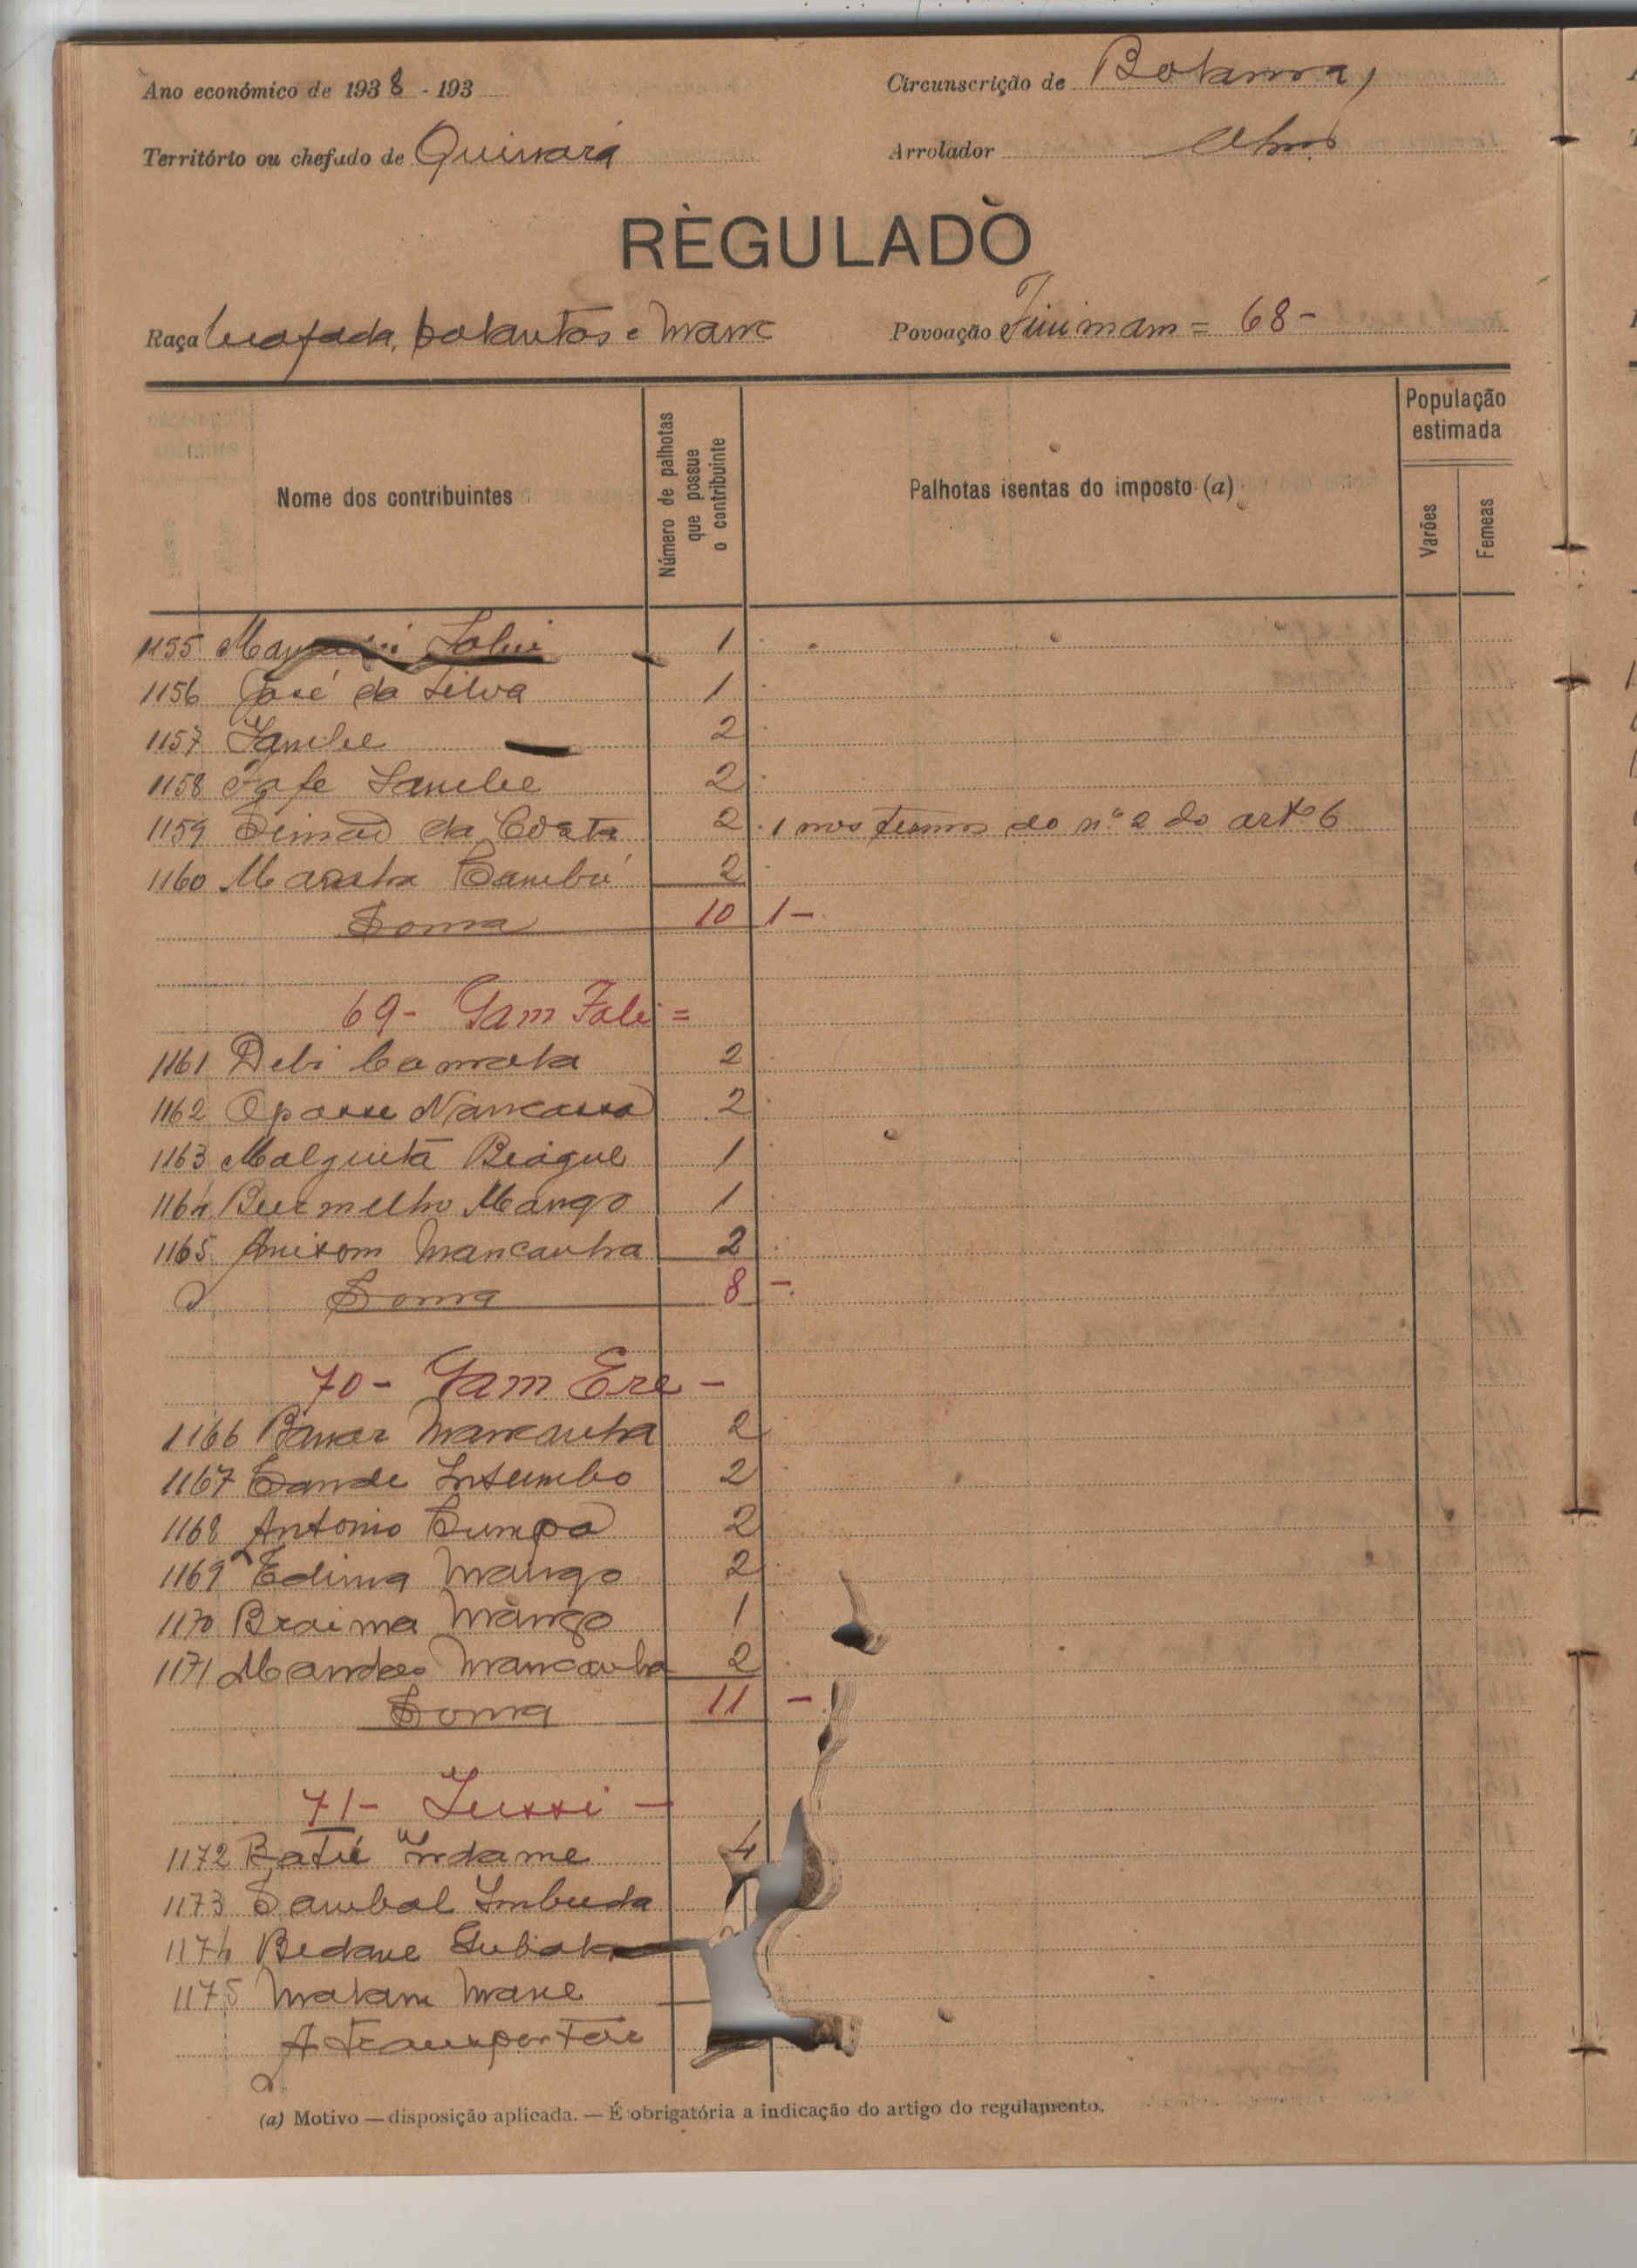 Ano económico de 1938 - 193
Circunscrição de Bolama,
Território ou chefado de Quinará
Arrolador
REGULADO
Raça beafada, balantas e manc
Povoação = 68 -
Nome dos contribuintes
Número de palhotas que possue o contribuinte
Palhotas isentas do imposto (a)
População estimada
Varões
Femeas
1155 1
1156 José da Silva 1
1157 Sambe 2
1158 Sambe 2
1159 Simão da Costa 2 1 nos termos do nº 2 do artº 6
1160 2
Soma 10 1 -
69 - Gam Fali =
1161 Debi Camata 2
1162 2
1163 Malguitã Biagué 1
1164 Buermelho Mango 1
1165 Mancanha 2
Soma 8 -
70 - Gam Ere -
1166 Mancanha 2
1167 2
1168 Antonio 2
1169 Edima Mango 2
1170 Braima Mango 1
1171 Mancanha 2
Soma 11 -
71 - Jussi -
1172 Batié Indame 4
1173 Sambal Imbunda
1174 Bedane
1175 Malam Mané
A transportar
(a) Motivo — disposição aplicada. — É obrigatória a indicação do artigo do regulamento.